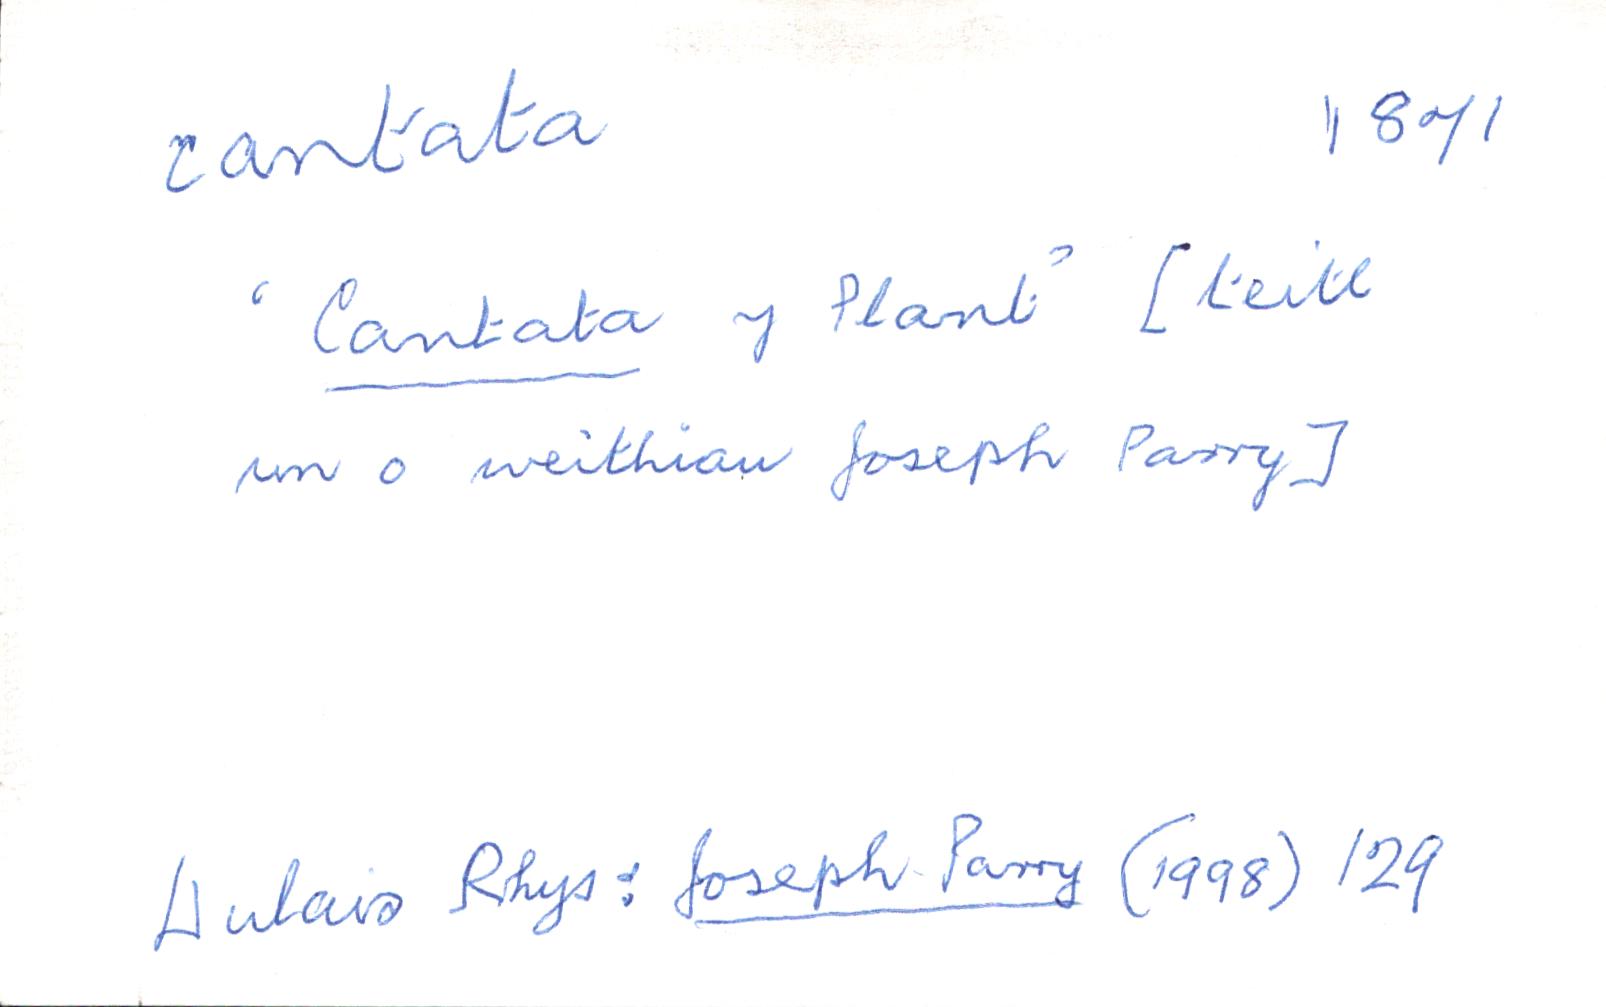 cantata 1871
‘Cantata y Plant’ [teitl
un o weithiau Joseph Parry]
Dulais Rhys: Joseph Parry (1998) 129